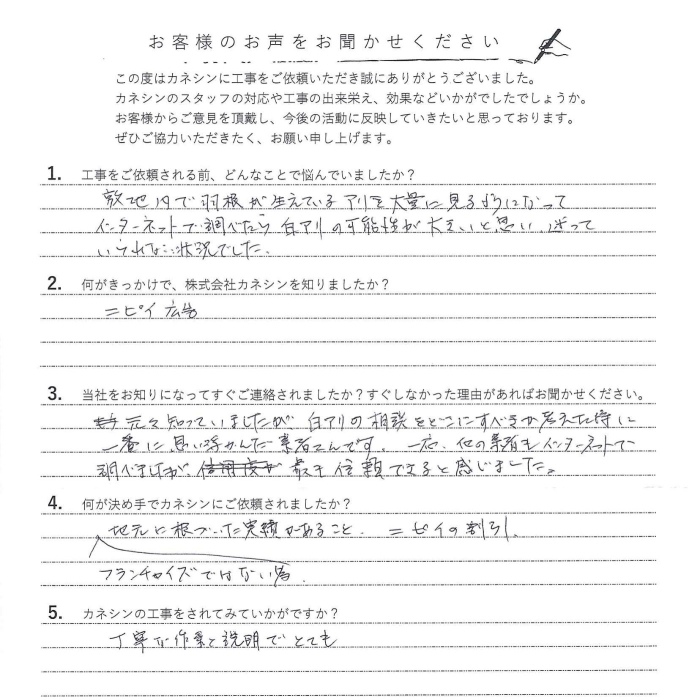 お客様のお声をお聞かせください
この度はカネシンに工事をご依頼いただき誠にありがとうございました。
カネシンのスタッフの対応や工事の出来栄え、効果などいかがでしたでしょうか。
お客様からご意見を頂戴し、今後の活動に反映していきたいと思っております。
ぜひご協力いただきたく、お願い申し上げます。
1. 工事をご依頼される前、どんなことで悩んでいましたか？
敷地内で羽根が生えているアリを大量に見るようになって
インターネットで調べたら白アリの可能性が大きいと思い、迷って
いられない状況でした。
2. 何がきっかけで、株式会社カネシンを知りましたか？
ニピイ広告
3. 当社をお知りになってすぐご連絡されましたか？すぐしなかった理由があればお聞かせください。
元々知っていましたが、白アリの相談をどこにすべきか考えた時に
一番に思い浮かんだ業者さんです。一応、他の業者もインターネットで
調べましたが、最も信頼できると感じました。
4. 何が決め手でカネシンにご依頼されましたか？
地元に根づいた実績があること。ニピイの割引。
フランチャイズではない為。
5. カネシンの工事をされてみていかがですか？
丁寧な作業と説明でとても